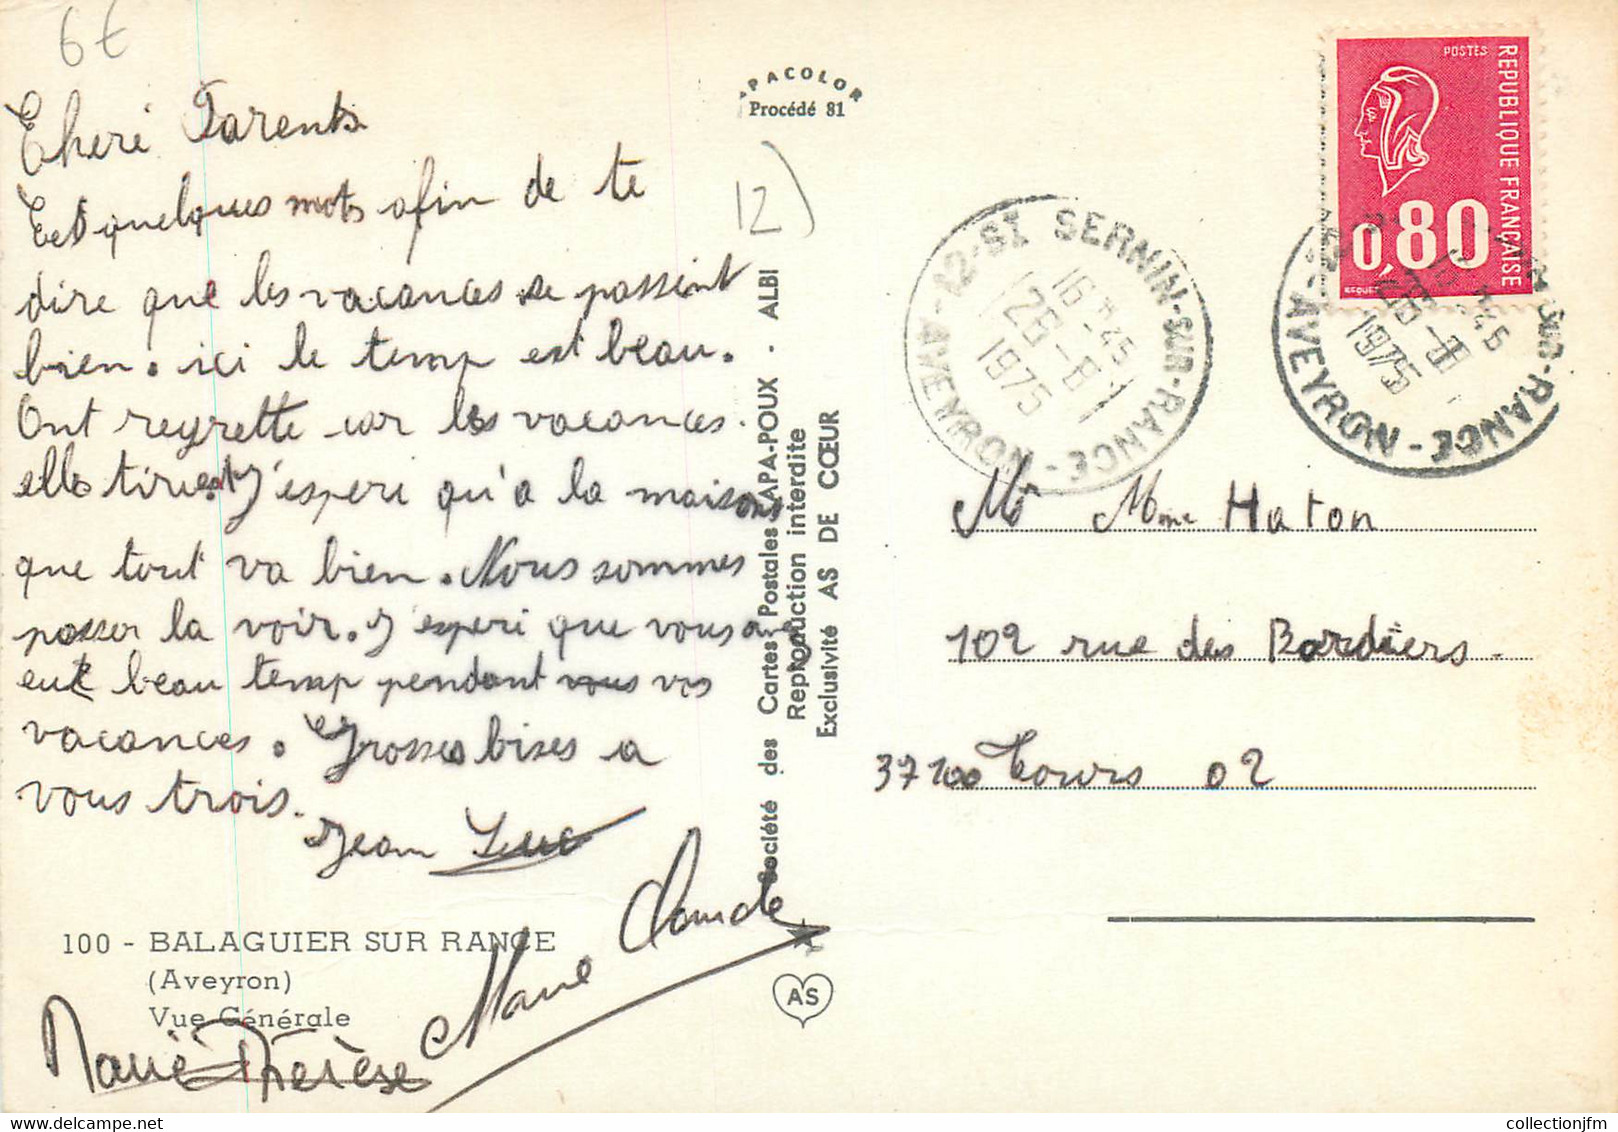 6€
Cheri Parents
Ces quelques mots afin de te
dire que les vacances se passent
bien. ici le temp est beau.
Ont regrette car les vacances.
elle tire et J'esperi qu'a la maisons
que tout va bien. Nous sommes
passer la voir. J'esperi que vous ave
eut beau temp pendant vous vos
vacances. Grosses bises a
vous trois.
Jean Luc
Marie Claude
Marie Thérèse
100 - BALAGUIER SUR RANCE
(Aveyron)
Vue Générale
APACOLOR
Procédé 81
12)
Société des Cartes Postales APA-POUX . ALBI
Reproduction interdite
Exclusivité AS DE CŒUR
AS
12-ST SERNIN-SUR-RANCE-AVEYRON-
16H45
26-8
1975
POSTES
REPUBLIQUE FRANÇAISE
0,80
BEQUET
SUR-RANCE-AVEYRON-
16H45
26-8
1975
Mr Mme Haton
102 rue des Bordiers.
37100 Tours 02
collectionjfm